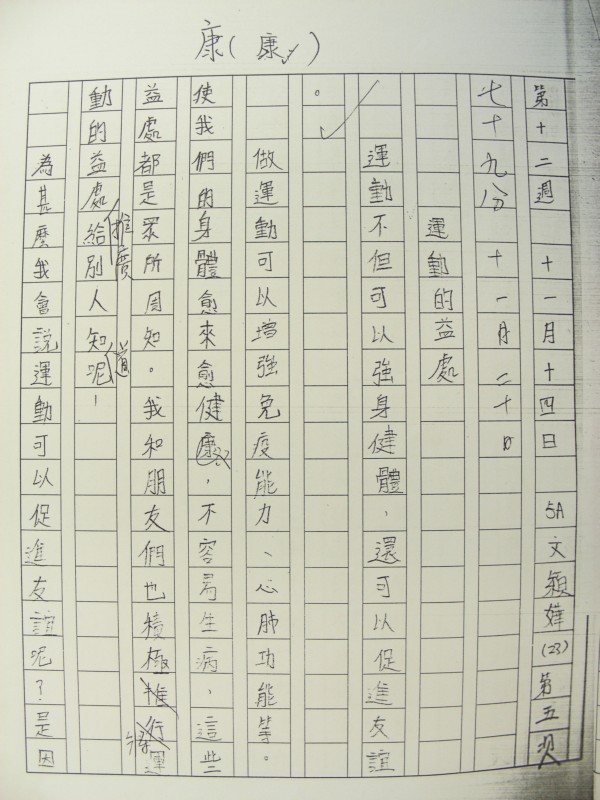 康(康✓)
第十二週 十一月十四日 5A 文穎嬅(23) 第五次
七十九分 十一月二十日
運動的益處
運動不但可以強身健體,還可以促進友誼
。
做運動可以增強免疫能力、心肺功能等。
使我們的身體愈來愈健康,不容易生病,這些
益處都是眾所周知。我和朋友們也積極推行運
動的益處給別人知呢!
推廣
道
為甚麼我會說運動可以促進友誼呢?是因